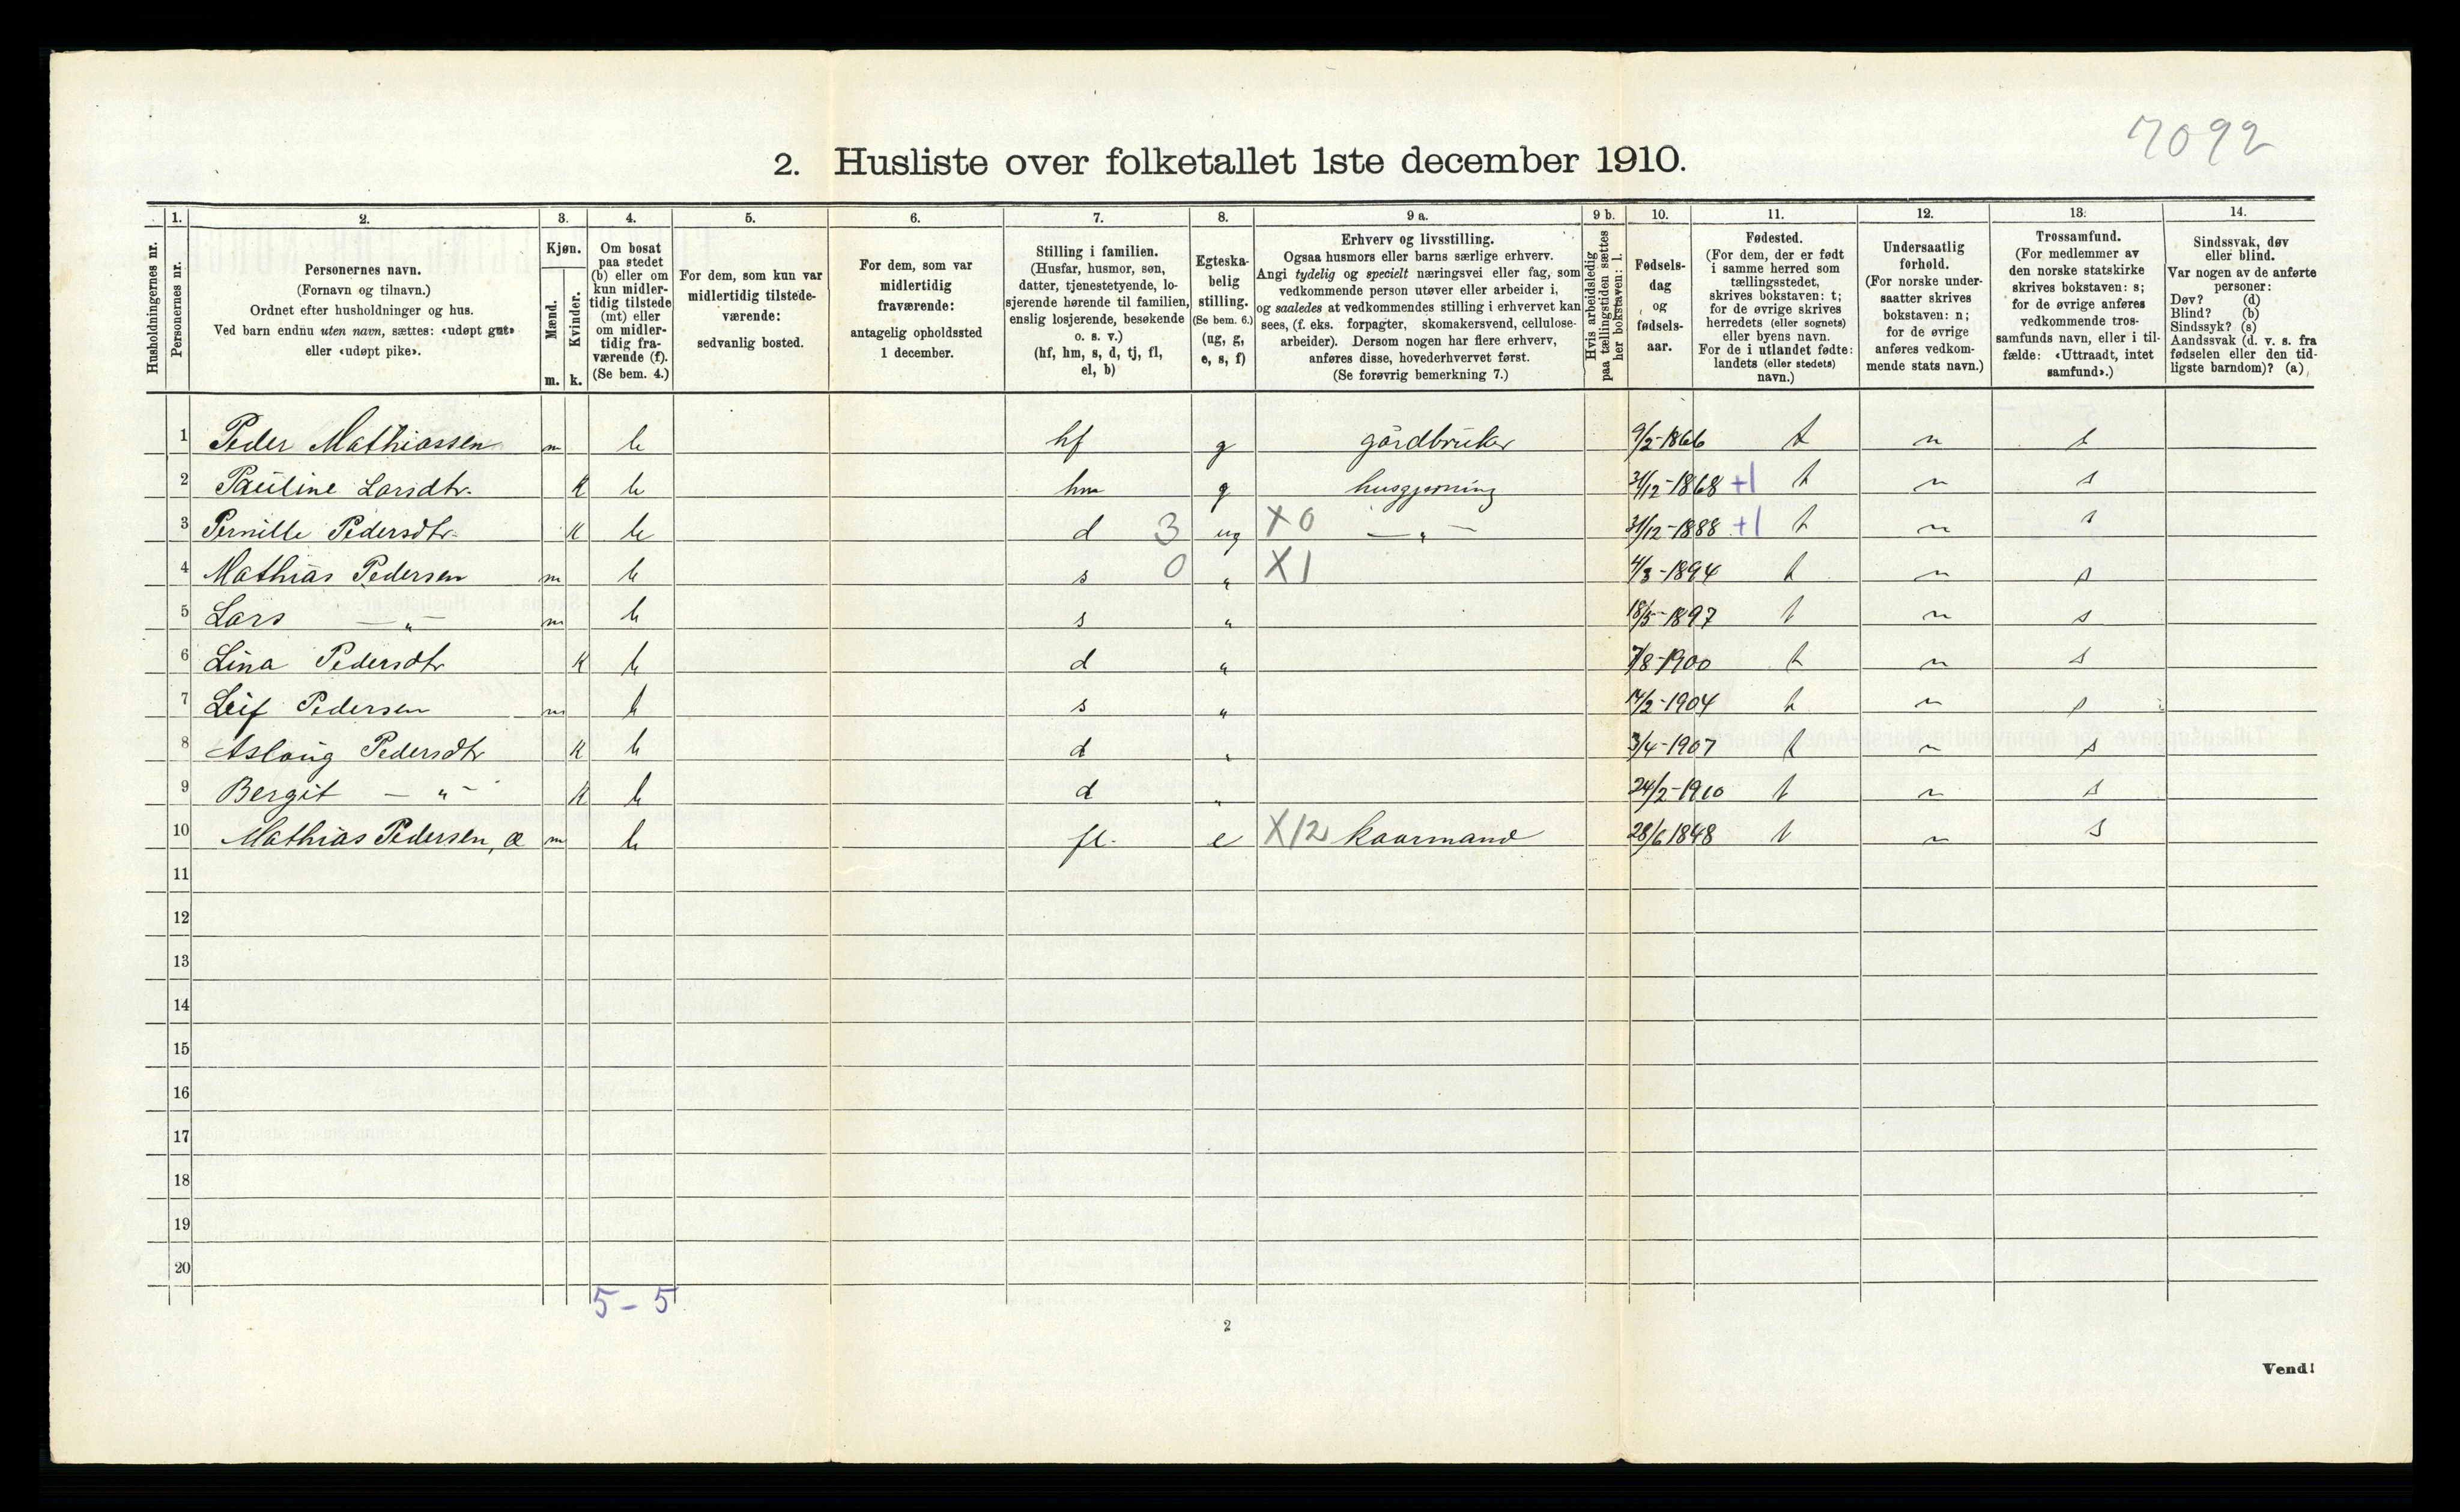 7092
2. Husliste over folketallet 1ste december 1910.
Husholdningernes nr.
1. Personernes nr.
2. Personernes navn. (Fornavn og tilnavn.) Ordnet efter husholdninger og hus. Ved barn endnu uten navn, sættes: «udøpt gut» eller «udøpt pike».
3. Kjøn. Mænd. m. Kvinder. k.
4. Om bosat paa stedet (b) eller om kun midlertidig tilstede (mt) eller om midlertidig fraværende (f). (Se bem. 4.)
5. For dem, som kun var midlertidig tilstedeværende: sedvanlig bosted.
6. For dem, som var midlertidig fraværende: antagelig opholdssted 1 december.
7. Stilling i familien. (Husfar, husmor, søn, datter, tjenestetyende, losjerende hørende til familien, enslig losjerende, besøkende o. s. v.) (hf, hm, s, d, tj, fl, el, b)
8. Egteskabelig stilling. (Se bem. 6.) (ug, g, e, s, f)
9 a. Erhverv og livsstilling. Ogsaa husmors eller barns særlige erhverv. Angi tydelig og specielt næringsvei eller fag, som vedkommende person utøver eller arbeider i, og saaledes at vedkommendes stilling i erhvervet kan sees, (f. eks. forpagter, skomakersvend, cellulosearbeider). Dersom nogen har flere erhverv, anføres disse, hovederhvervet først. (Se forøvrig bemerkning 7.)
9 b. Hvis arbeidsledig paa tællingstiden sættes her bokstaven: l.
10. Fødselsdag og fødselsaar.
11. Fødested. (For dem, der er født i samme herred som tællingsstedet, skrives bokstaven: t; for de øvrige skrives herredets (eller sognets) eller byens navn. For de i utlandet fødte: landets (eller stedets) navn.)
12. Undersaatlig forhold. (For norske undersaatter skrives bokstaven: n; for de øvrige anføres vedkommende stats navn.)
13. Trossamfund. (For medlemmer av den norske statskirke skrives bokstaven: s; for de øvrige anføres vedkommende trossamfunds navn, eller i tilfælde: «Uttraadt, intet samfund».)
14. Sindssvak, døv eller blind. Var nogen av de anførte personer: Døv? (d) Blind? (b) Sindssyk? (s) Aandssvak (d. v. s. fra fødselen eller den tidligste barndom)? (a)
1 Peder Mathiassen m b hf g gårdbruker 9/2-1866 t n s
2 Pauline Larsdtr. K b hm g husgjerning 31/12-1868 +1 t n s
3 Pernille Pedersdtr. K b d 3 ug X0 — " — 31/12-1888 +1 t n s
4 Mathias Pedersen m b s 0 " X1 4/3-1894 t n s
5 Lars — " — m b s " 18/5-1897 t n s
6 Lina Pedersdtr K b d " 7/8-1900 t n s
7 Leif Pedersen m b s " 14/2-1904 t n s
8 Aslaug Pedersdtr K b d " 3/4-1907 t n s
9 Bergit — " — K b d " 24/2-1910 t n s
10 Mathias Pedersen, æ m b fl. e X12 kaarmand 28/6 1848 t n s
11
12
13
14
15
16
17
18
19
20
5-5
2
Vend!